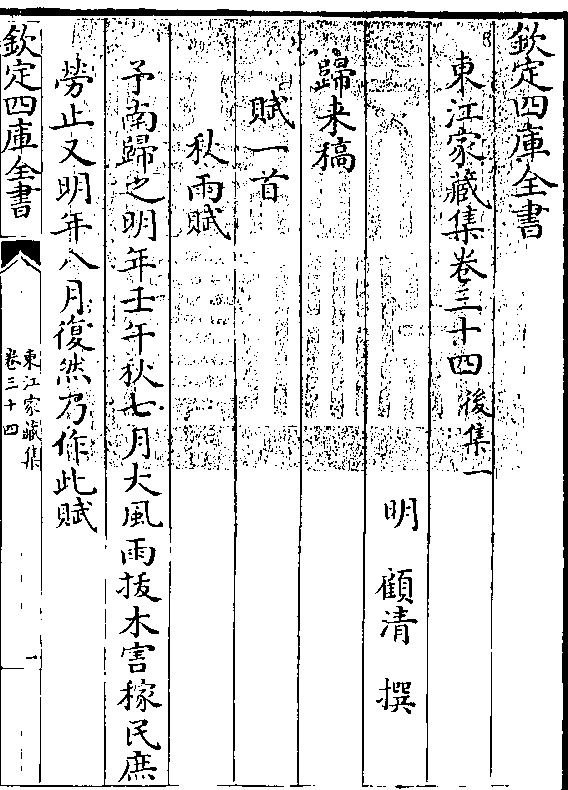 欽定四庫全書
東江家藏集卷三十四 後集一
明 顧清 撰
歸来稿
賦一首
秋雨賦
予南歸之明年壬午秋七月大風雨拔木害稼民庶
勞止又明年八月復然乃作此賦
欽定四庫全書
東江家藏集
卷三十四
一